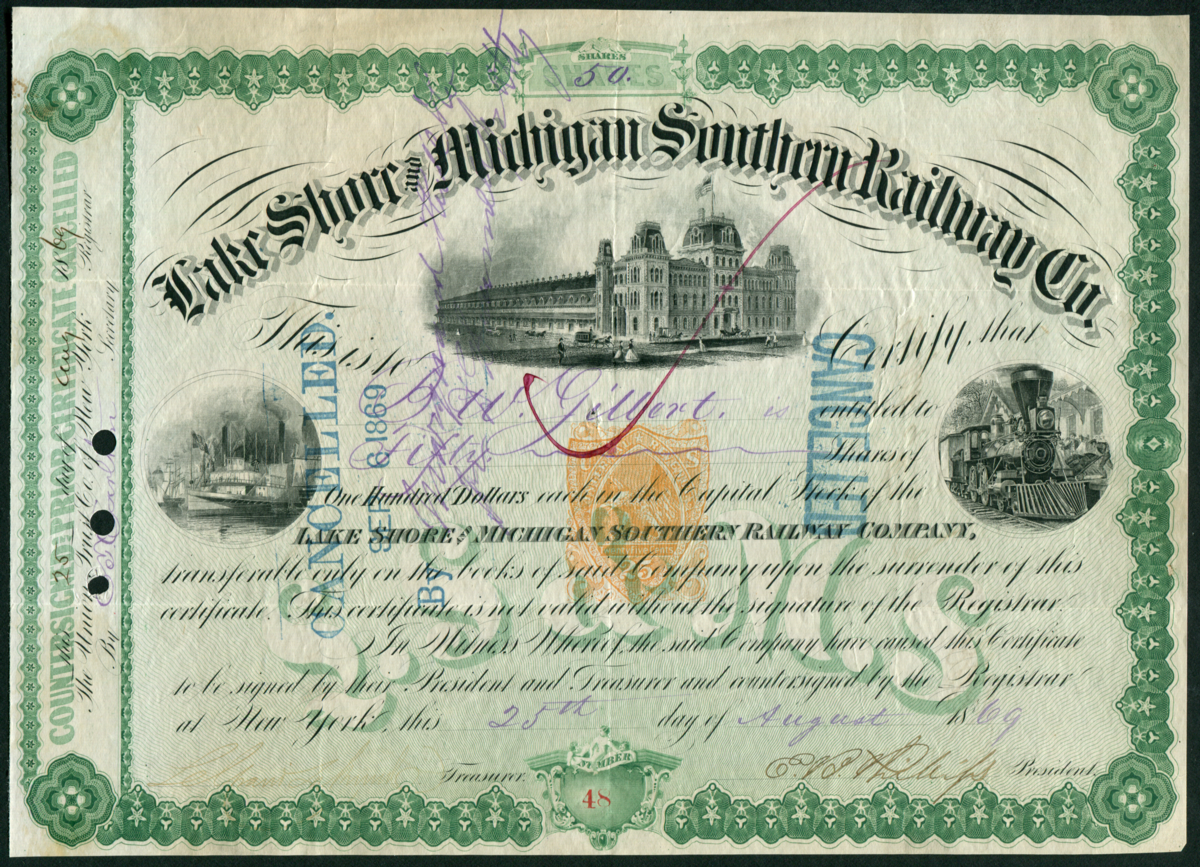 SHARES
50.
Lake Shore and Michigan Southern Railway Co.
This is to Certify, that
G. W. Gilbert. is entitled to
Fifty Shares of
One Hundred Dollars each in the Capital Stock of the
LAKE SHORE and MICHIGAN SOUTHERN RAILWAY COMPANY,
transferable only on the books of said Company upon the surrender of this
certificate. This certificate is not valid without the signature of the Registrar.
In Witness Whereof, the said Company have caused this Certificate
to be signed by their President and Treasurer and countersigned by the Registrar
at New York, this 25th day of August 1869
Treasurer.
E. B. Phillips President.
NUMBER
48
COUNTERSIGNED & REGISTERED CERTIFICATE
this 25 day of Aug 1869
The Union Trust Co. of New York Registrar
By Secretary
CANCELLED.
SEP 6 1869
By
CANCELLED
L.S. & M.S